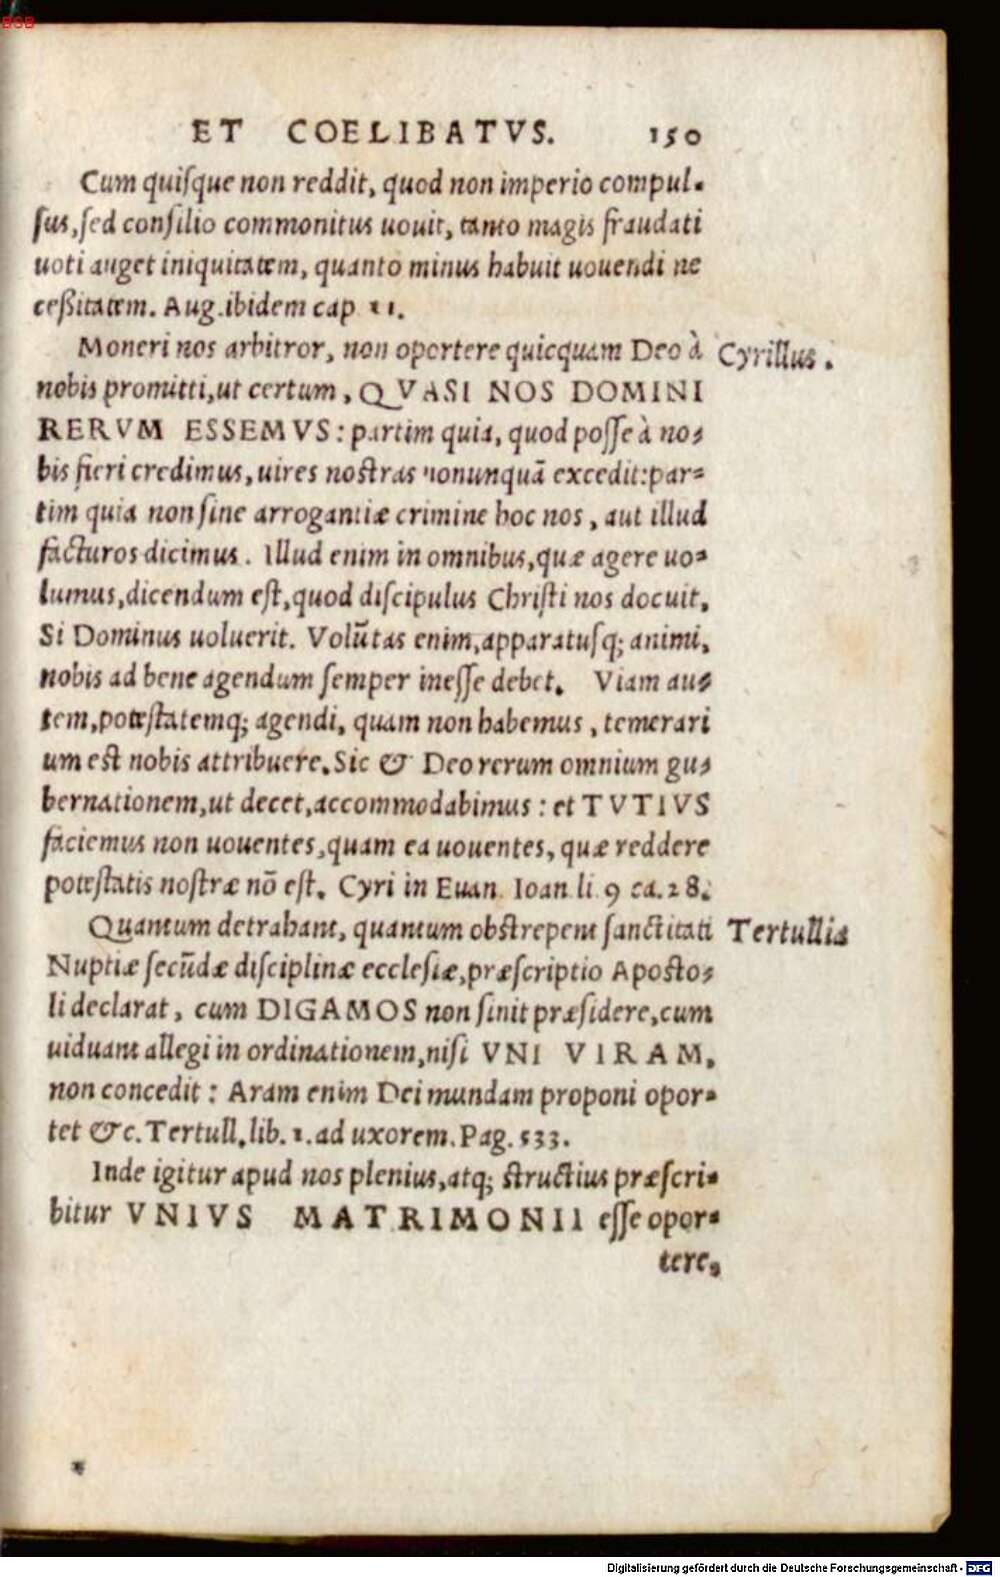 BSB
ET COELIBATVS. 150
Cum quisque non reddit, quod non imperio compul-
sus, sed consilio commonitus uouit, tanto magis fraudati
uoti auget iniquitatem, quanto minus habuit uouendi ne
ceßitatem. Aug. ibidem cap 11.
Moneri nos arbitror, non oportere quicquam Deo à
Cyrillus.
nobis promitti, ut certum, QVASI NOS DOMINI
RERVM ESSEMVS: partim quia, quod posse à no-
bis fieri credimus, uires nostras nonunquā excedit: par-
tim quia non sine arrogantiæ crimine hoc nos, aut illud
facturos dicimus. Illud enim in omnibus, quæ agere uo-
lumus, dicendum est, quod discipulus Christi nos docuit,
Si Dominus uoluerit. Volūtas enim, apparatusq; animi,
nobis ad bene agendum semper inesse debet. Viam au-
tem, potestatemq; agendi, quam non habemus, temerari
um est nobis attribuere. Sic & Deo rerum omnium gu-
bernationem, ut decet, accommodabimus: et TVTIVS
faciemus non uouentes, quam ea uouentes, quæ reddere
potestatis nostræ nō est. Cyri in Euan Ioan li. 9 ca. 28.
Quantum detrahant, quantum obstrepent sanctitati
Tertullia
Nuptiæ secūdæ disciplinæ ecclesiæ, præscriptio Aposto-
li declarat, cum DIGAMOS non sinit præsidere, cum
uiduam allegi in ordinationem, nisi VNI VIRAM,
non concedit: Aram enim Dei mundam proponi opor-
tet &c. Tertull. lib. 1. ad uxorem. Pag. 533.
Inde igitur apud nos plenius, atq; structius præscri-
bitur VNIVS MATRIMONII esse opor-
tere,
Digitalisierung gefördert durch die Deutsche Forschungsgemeinschaft - DFG